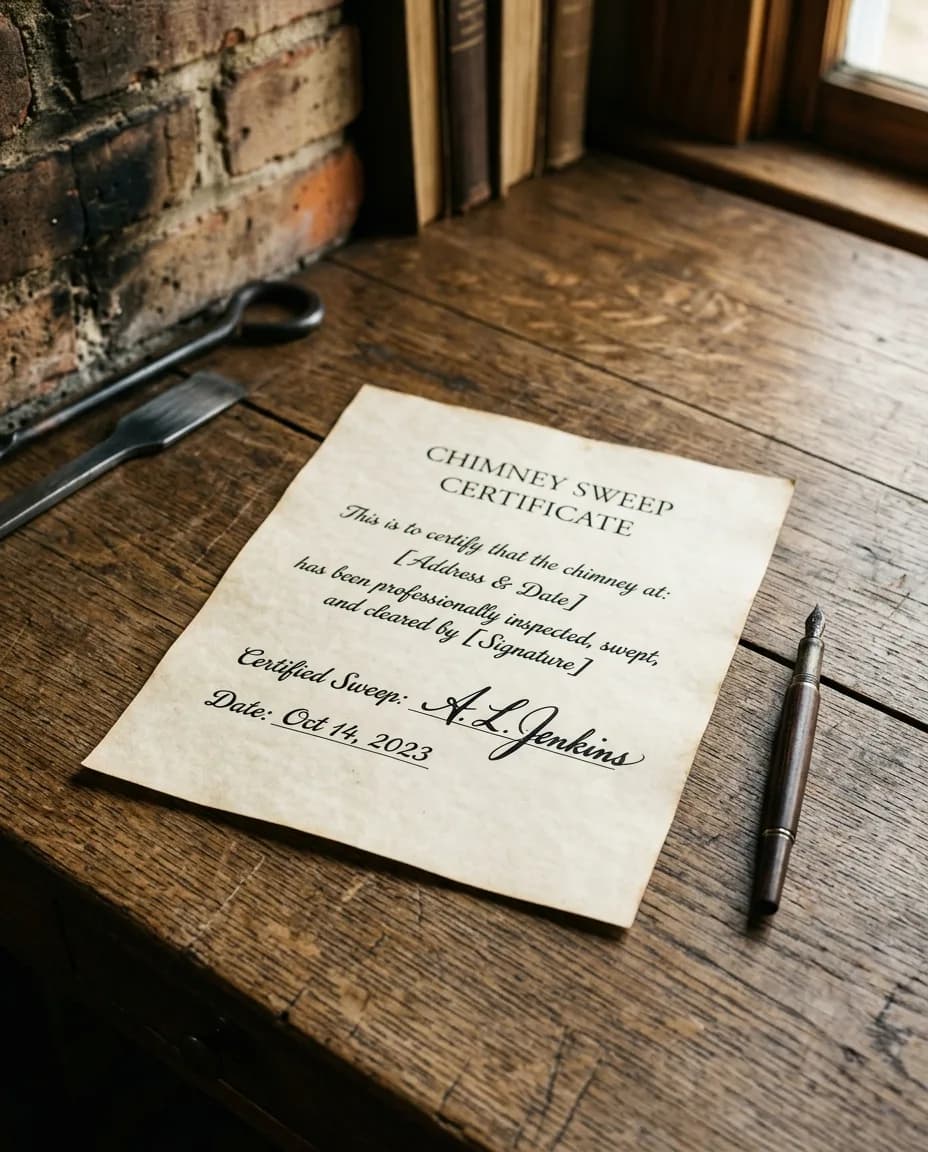 CHIMNEY SWEEP
CERTIFICATE
This is to certify that the chimney at:
[Address & Date]
has been professionally inspected, swept,
and cleared by [Signature]
Certified Sweep: A. L. Jenkins
Date: Oct 14, 2023